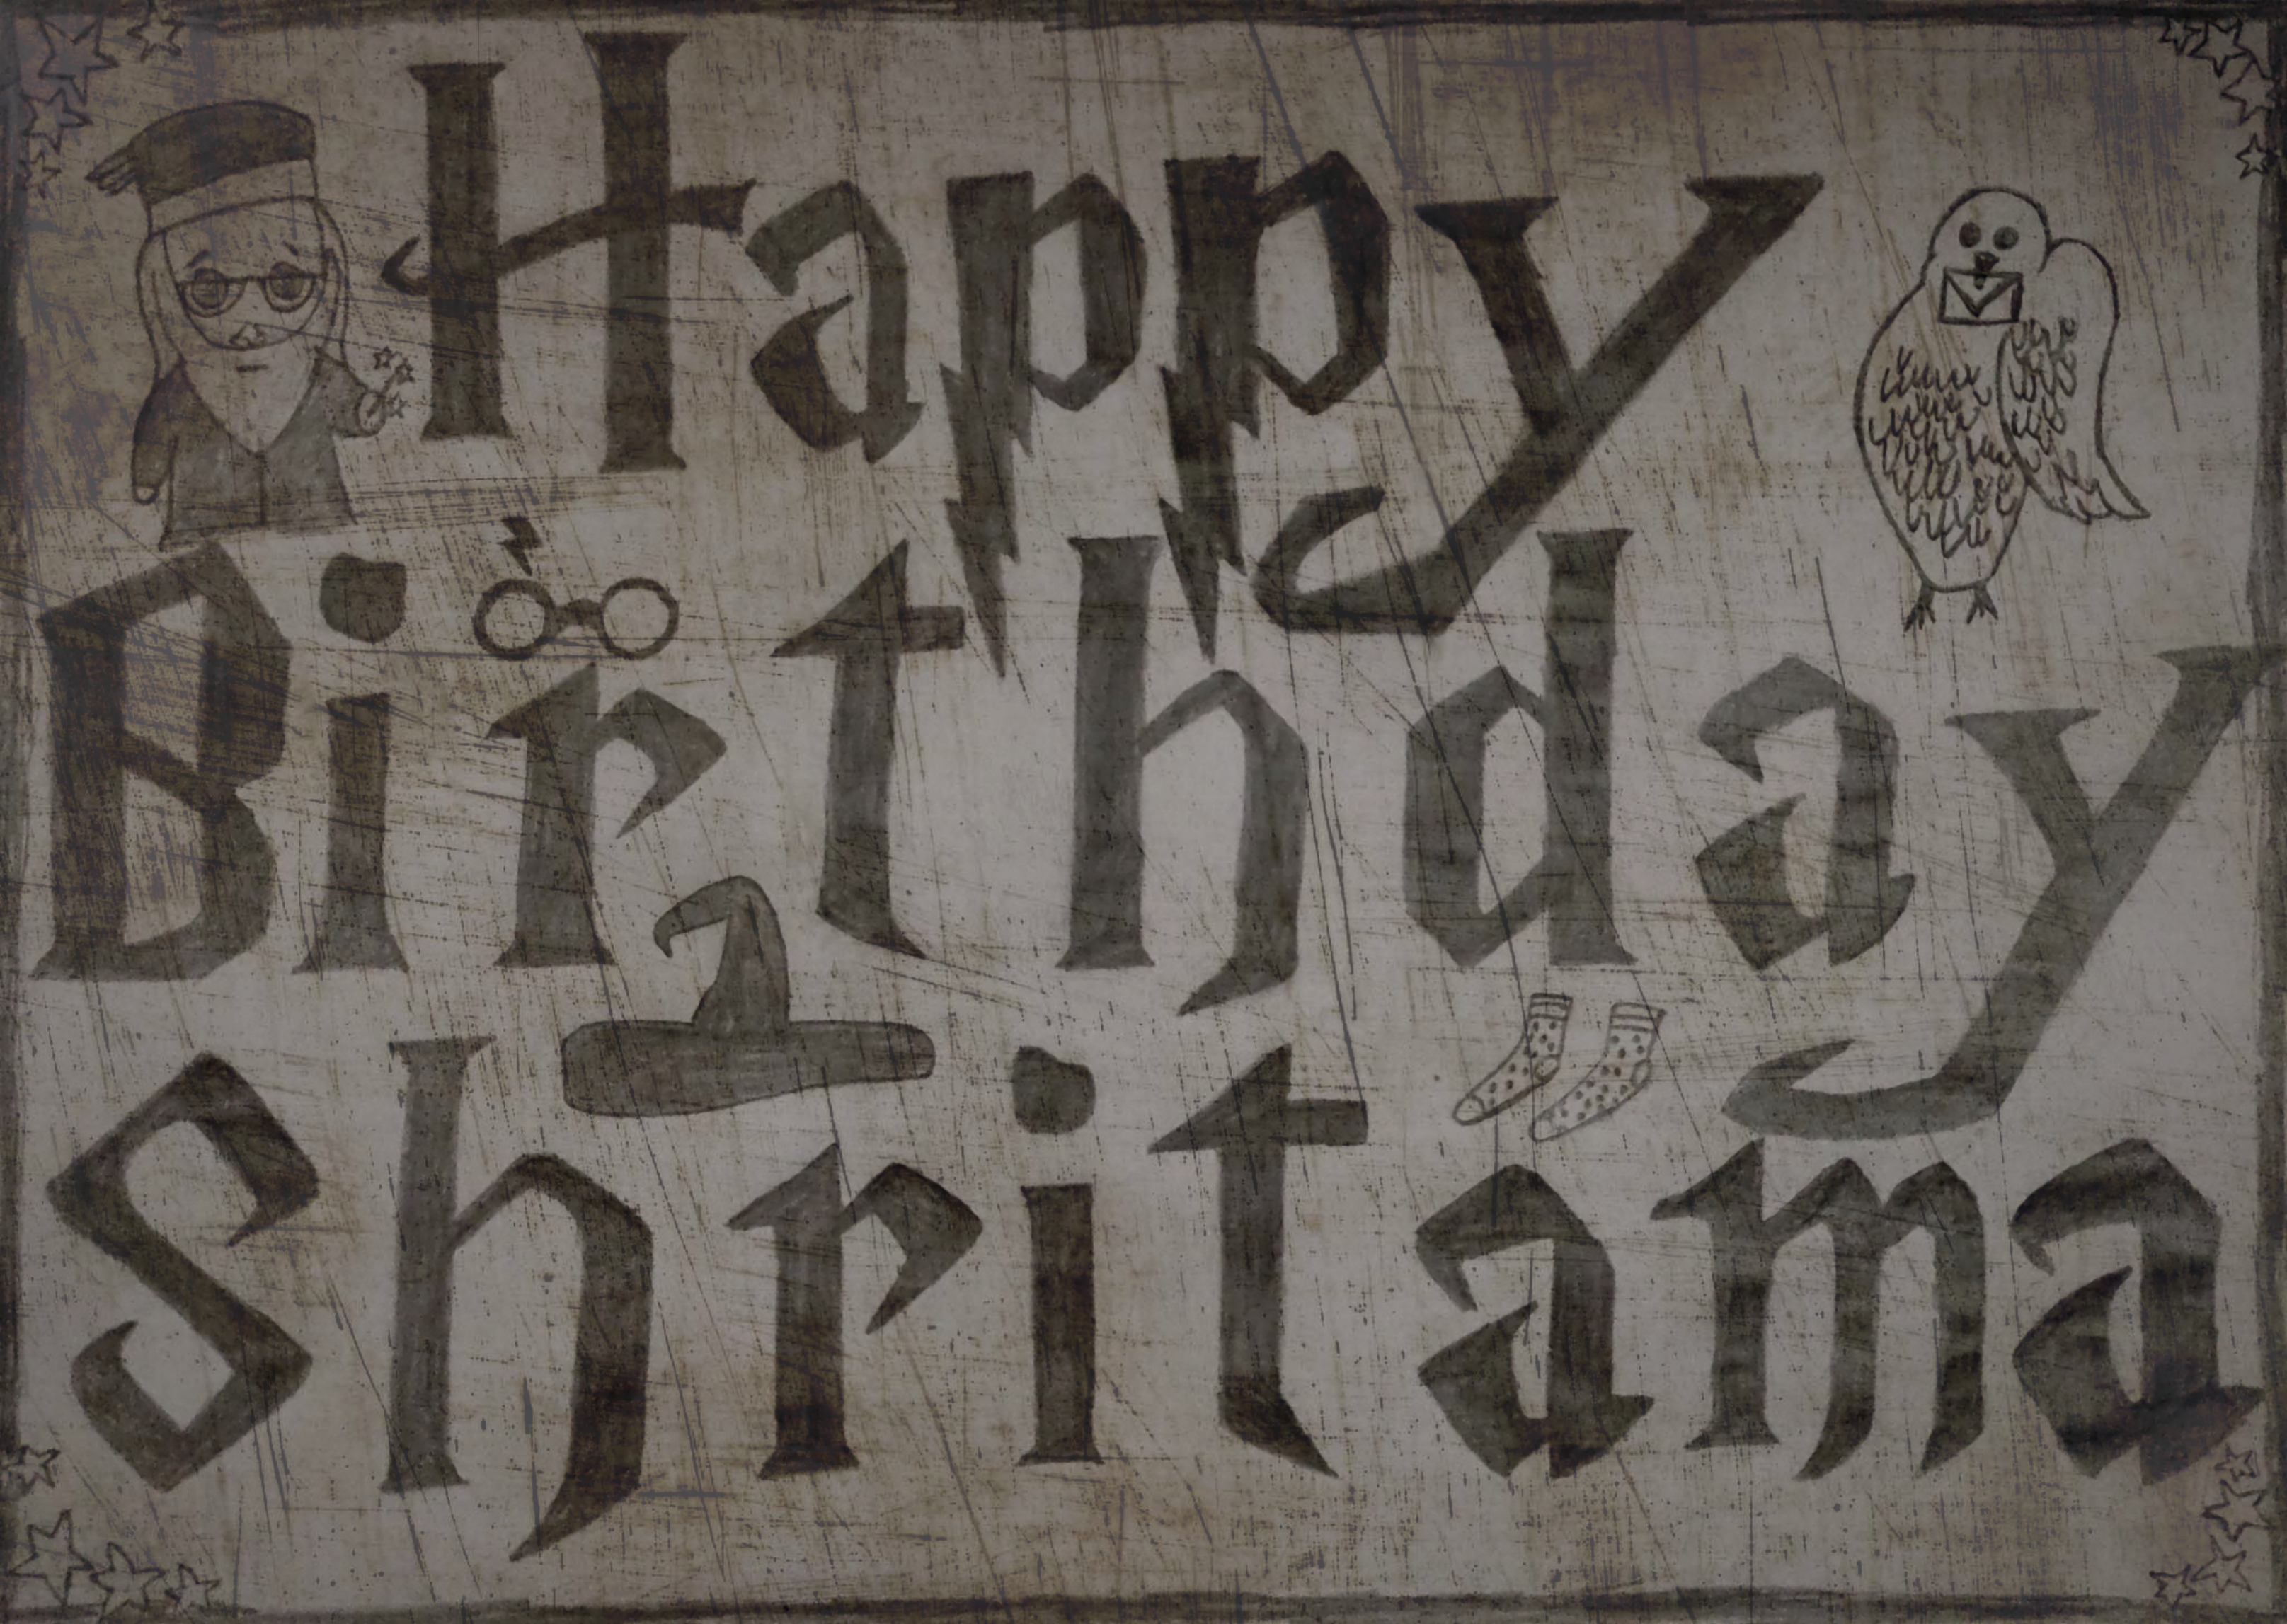 Happy
Birthday
Shritama